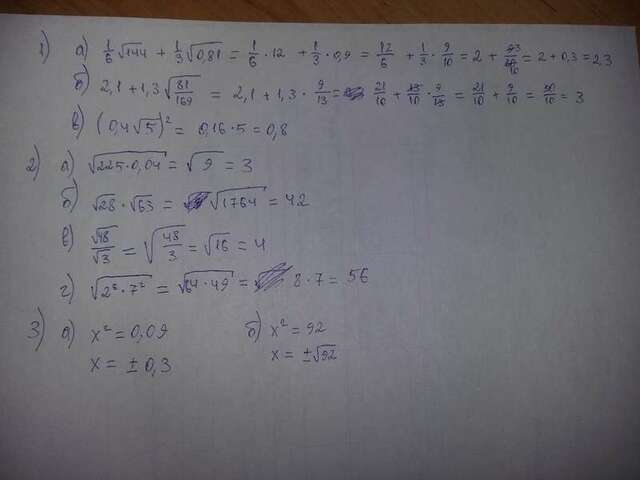 1) а) 1/6 √144 + 1/3 √0,81 = 1/6 · 12 + 1/3 · 0,9 = 12/6 + 1/3 · 9/10 = 2 + 3/10 = 2 + 0,3 = 2,3
б) 2,1 + 1,3 √(81/169) = 2,1 + 1,3 · 9/13 = 21/10 + 13/10 · 9/13 = 21/10 + 9/10 = 30/10 = 3
в) (0,4√5)² = 0,16 · 5 = 0,8
2) а) √(225 · 0,04) = √9 = 3
б) √28 · √63 = √1764 = 42
в) √48/√3 = √(48/3) = √16 = 4
г) √(2⁶ · 7²) = √(64 · 49) = 8 · 7 = 56
3) а) x² = 0,09
x = ± 0,3
б) x² = 92
x = ±√92